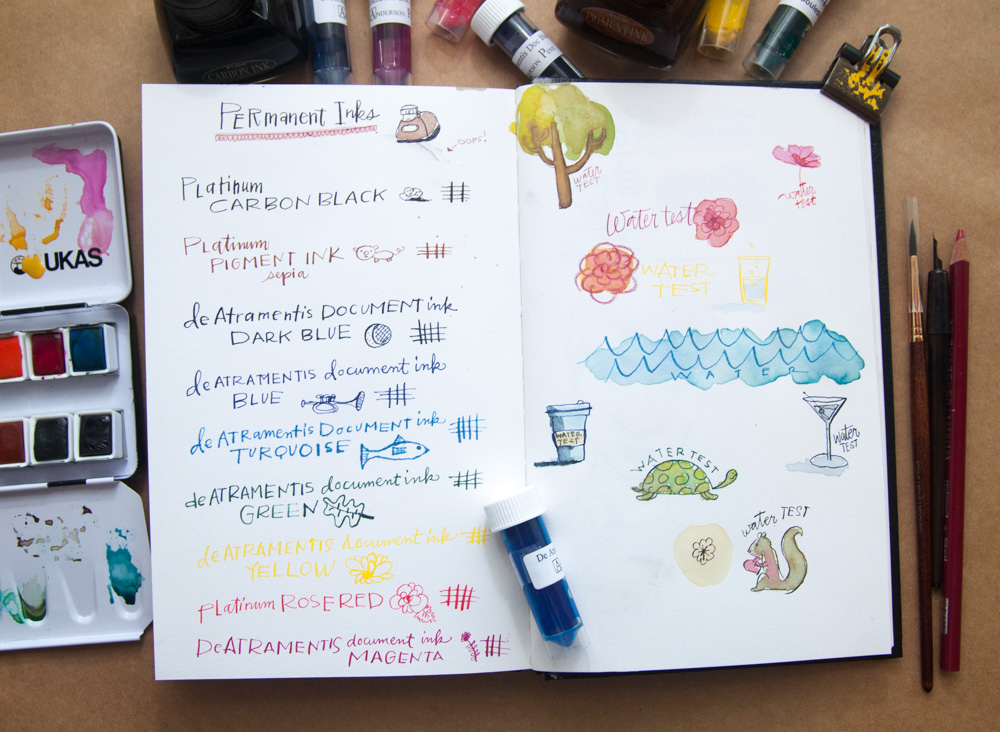 CARBON INK
ANDERSON
PIGMENT INK
UKAS
PERmanent Inks
OOPS!
Platinum
CARBON BLACK
Platinum
PIGMENT INK
sepia
de Atramentis DOCUMENT ink
DARK BLUE
de ATRAMENTIS document ink
BLUE
de ATRAMENTIS DOCUMENT ink
TURQUOISE
de ATRAMENTIS document ink
GREEN
de ATRAMENTIS document ink
YELLOW
Platinum ROSE RED
DeATRAMENTIS document ink
MAGENTA
De A
water
TEST
water
test
Water test
WATER
TEST
WATER
WATER
TEST
water
TEST
WATER TEST
water TEST